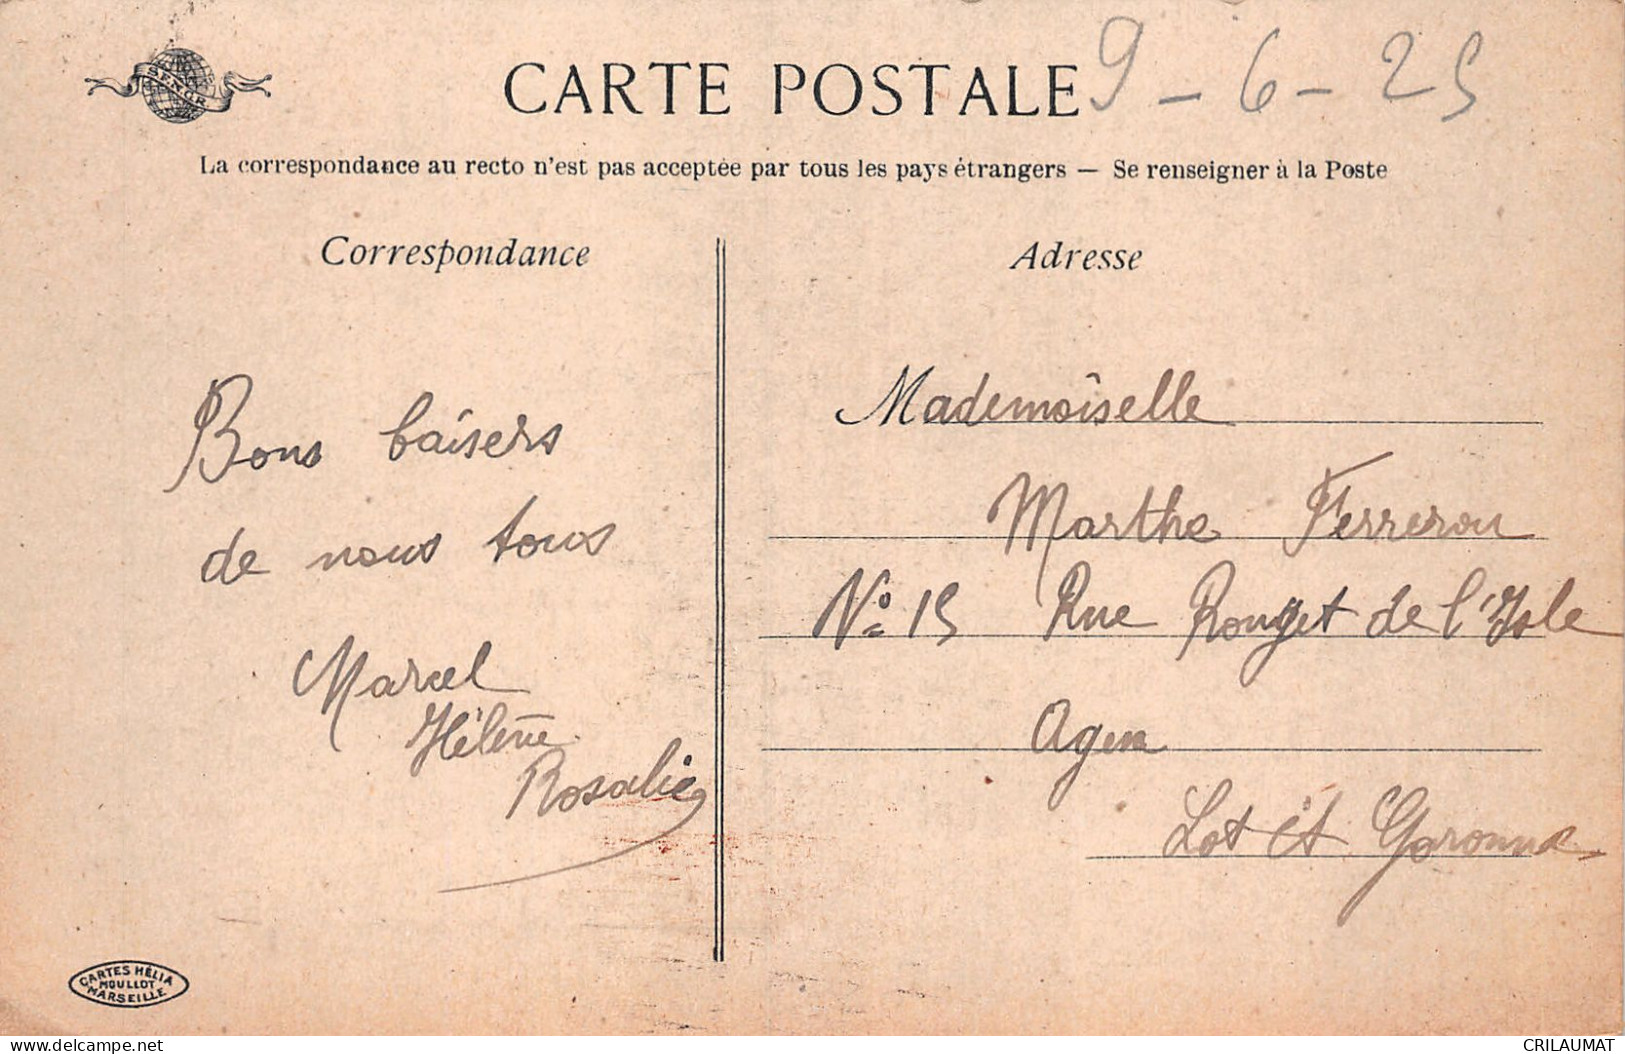 SENOR
CARTE POSTALE
9-6-25
La correspondance au recto n'est pas acceptée par tous les pays étrangers — Se renseigner à la Poste
Correspondance
Bons baisers
de nous tous
Marcel
Hélène
Rosalie
Adresse
Mademoiselle
Marthe Ferreron
Nº 15 Rue Rouget de l'Isle
Agen
Lot et Garonne
CARTES HÉLIA
MOULLOT
MARSEILLE
delcampe.net
CRILAUMAT